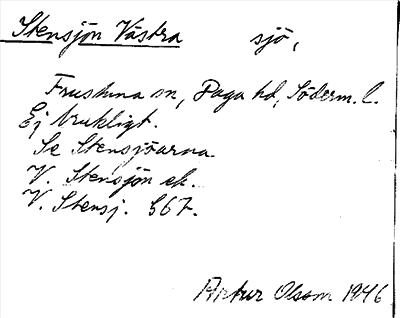 Stensjön Västra sjö,
Frustuna sn, Daga hd, Söderm. l.
Ej brukligt.
Se Stensjöarna.
V. Stensjön ek.
V. Stensj. 567.
Artur Olsson 1946